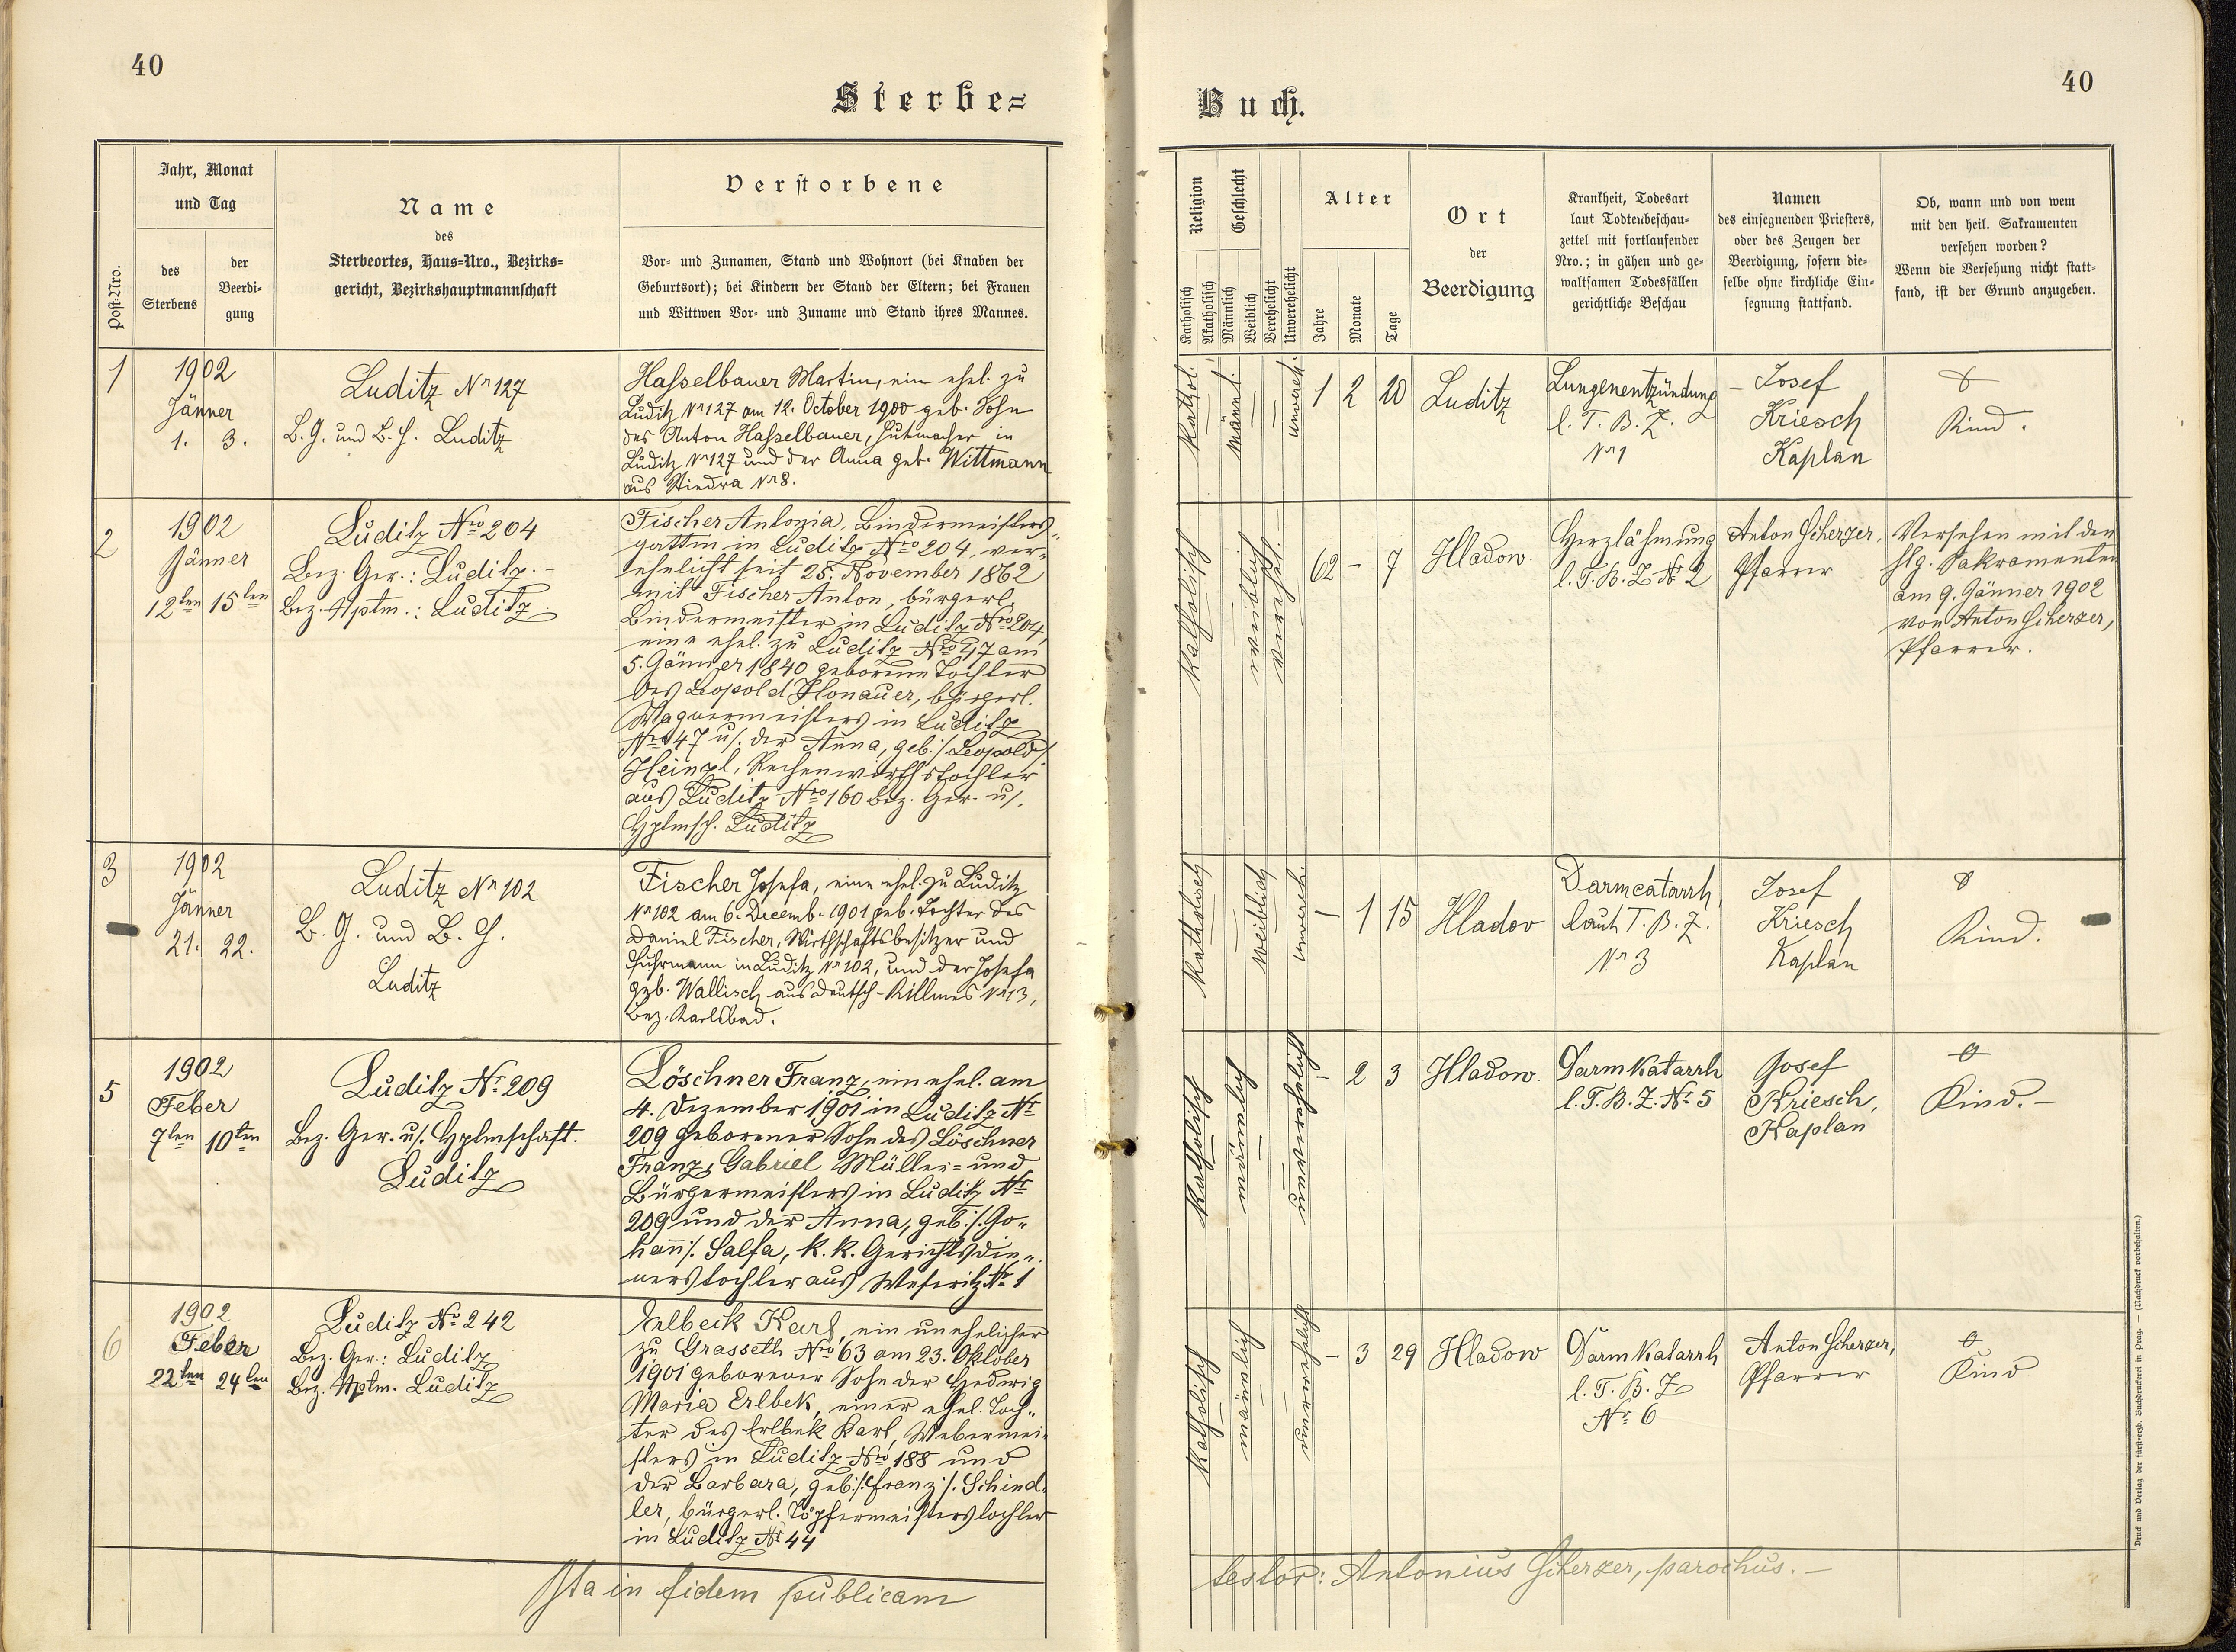 40
Sterbe=
Jahr, Monat
und Tag
Post-Nro.
des
Sterbens
der
Beerdi-
gung
Name
des
Sterbeortes, Haus=Nro., Bezirks=
gericht, Bezirkshauptmannschaft
Verstorbene
Vor= und Zunamen, Stand und Wohnort (bei Knaben der
Geburtsort); bei Kindern der Stand der Eltern; bei Frauen
und Wittwen Vor= und Zuname und Stand ihres Mannes.
1
1902
Jänner
1. 3.
Luditz Nr 127
B. G. und B. H. Luditz
Hasselbauer Martin, ein ehel. zu
Luditz Nr 127 am 12. October 1900 geb. Sohn
des Anton Hasselbauer, Hutmacher in
Luditz Nr 127 und der Anna geb. Wittmann
aus Stiedra Nr 8.
2
1902
Jänner
12ten 15ten
Luditz Nro 204
Bez. Ger.: Luditz.-
Bez. Hptm.: Luditz
Fischer Antonia, Bindermeisters„
gattin in Luditz Nro 204, ver„
ehelicht seit 25. November 1862
mit Fischer Anton, bürgerl.
Bindermeister in Luditz Nro 204,
eine ehel. zu Luditz Nro 47 am
5. Jänner 1840 geborene Tochter
des Leopold Honauer, bürgerl.
Wagnermeisters in Luditz
Nro 47 u/. der Anna, geb. /: Leopold /:
Heinzl, tochter
aus Luditz Nro 160 Bez. Ger. u/.
Hptmsch. Luditz
3
1902
Jänner
21. 22.
Luditz Nr 102
B. G. und B. H.
Luditz
Fischer Josefa, eine ehel. zu Luditz
Nr 102 am 6. Decemb. 1901 geb. Tochter des
Daniel Fischer, Wirthschaftsbesitzer und
Fuhrmann in Luditz Nr 102, und der Josefa
geb. Wallisch aus Deutsch-Killmes Nr 13,
Bez. Karlsbad.
5
1902
Feber
7ten 10ten
Luditz Nr. 209
Bez. Ger. u/. Hptmschaft.
Luditz
Löschner Franz, ein ehel. am
4. Dezember 1901 in Luditz Nr
209 geborener Sohn des Löschner
Franz, Gabriel Müller= und
Bürgermeisters in Luditz Nr
209 und der Anna, geb. /: Jo„
hann /: Salfa, k. k. Gerichtsdie„
nerstochter aus Weseritz Nr 1
6
1902
Feber
22ten 24ten
Luditz Nr. 242
Bez. Ger.: Luditz
Bez. Hptm. Luditz
Erlbeck Karl, ein unehelicher
zu Grasseth Nro 63 am 23. Oktober
1901 geborener Sohn der Hedwig
Maria Erlbek, einer ehel. Toch„
ter des Erlbek Karl, Webermei„
sters in Luditz Nro 188 und
der Barbara, geb. /: Franz /: Schind„
ler, bürgerl. Töpfermeisterstochter
in Luditz Nr 44
Ita in fidem publicam
40
Buch.
Religion
Katholisch
Akatholisch
Geschlecht
Männlich
Weiblich
Verehelicht
Unverehelicht
Alter
Jahre
Monate
Tage
Ort
der
Beerdigung
Krankheit, Todesart
laut Todtenbeschau-
zettel mit fortlaufender
Nro.; in gähen und ge-
waltsamen Todesfällen
gerichtliche Beschau
Namen
des einsegnenden Priesters,
oder des Zeugen der
Beerdigung, sofern die-
selbe ohne kirchliche Ein-
segnung stattfand.
Ob, wann und von wem
mit den heil. Sakramenten
versehen worden?
Wenn die Versehung nicht statt-
fand, ist der Grund anzugeben.
Kathol.
Männl.
unvereh.
1 2 20
Luditz
Lungenentzündung
l. T. B. Z.
Nr 1
Josef
Kriesch
Kaplan
Kind.
Katholisch
weiblich
verehel.
62 - 7
Hladow.
Herzlähmung
l. T. B. Z. Nr 2
Anton Scherzer,
Pfarrer
Versehen mit den
hlg. Sakramenten
am 9. Jänner 1902
von Anton Scherzer,
Pfarrer.
Katholisch
weiblich
unvereh.
- 1 15
Hladov
Darmcatarrh,
laut T. B. Z.
Nr 3
Josef
Kriesch
Kaplan
Kind.
Katholisch
mänlich
unverehelicht
- 2 3
Hladow.
Darmkatarrh
l. T. B. Z. Nr. 5
Josef
Kriesch,
Kaplan
Kind.-
Katholisch
mänlich
unverehelicht
- 3 29
Hladow
Darmkatarrh
l. T. B. Z
Nr. 6
Anton Scherzer,
Pfarrer
Kind
testor: Antonius Scherzer, parochus.-
Druck und Verlag der fürst-erzb. Buchdruckerei in Prag. — (Nachdruck vorbehalten.)